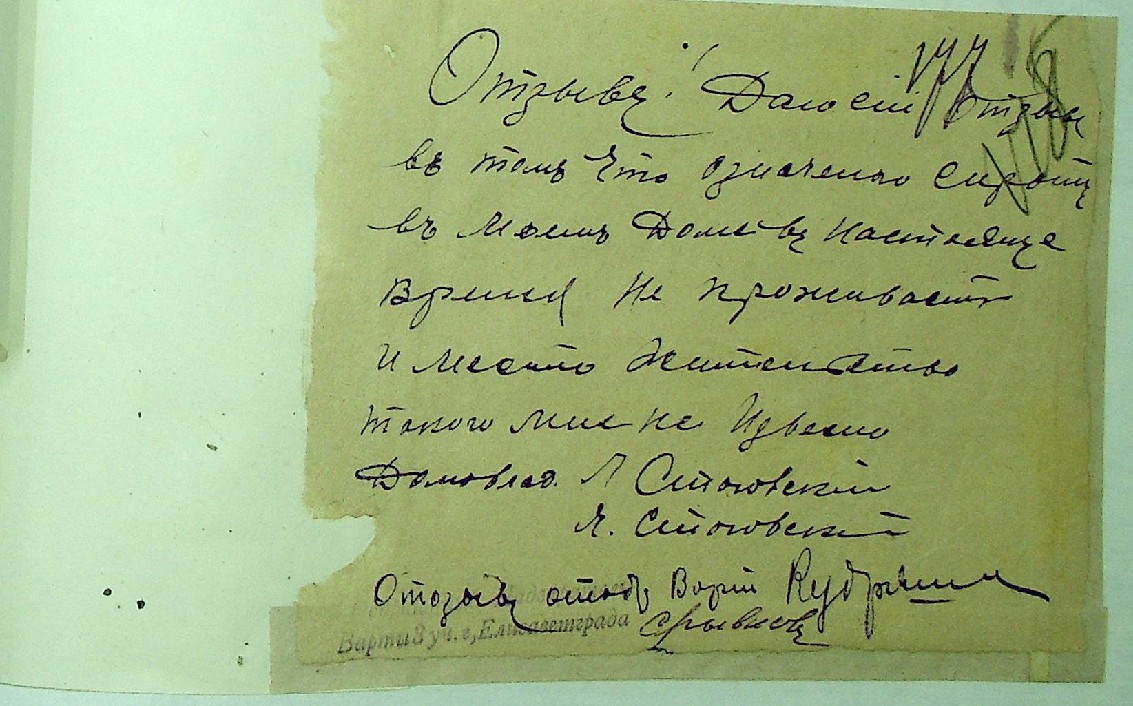 177
Отзывъ! Даю сей отзыв
въ томъ что означено
въ моемъ Доме въ настояще
время не проживаетъ
и место жительство
такого мне не Извесно
Домовлад. Л Стоговский
Стоговский
Отозывъ отобр Варти
Варти 3 уч. г. Елисаветграда